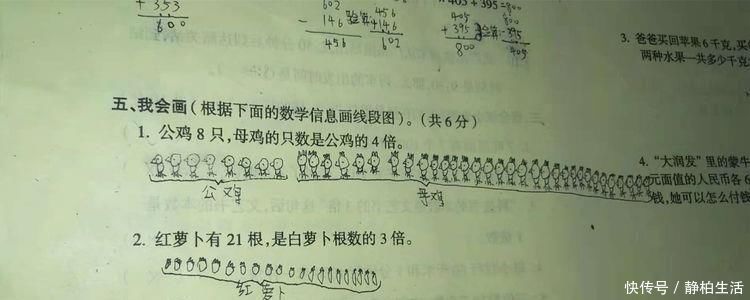 + 353
600
602
- 146
456
验算
456
+ 146
602
405 + 395 = 800
405
+ 395
800
验算
800
- 395
405
3. 爸爸买回苹果6千克,买
两种水果一共多少千克
五、我会画(根据下面的数学信息画线段图)。(共6分)
1. 公鸡8只,母鸡的只数是公鸡的4倍。
公鸡
母鸡
4. “大润发”里的蒙牛
元面值的人民币各6
钱,她可以怎么付钱
2. 红萝卜有21根,是白萝卜根数的3倍。
红萝卜
快传号 / 静柏生活